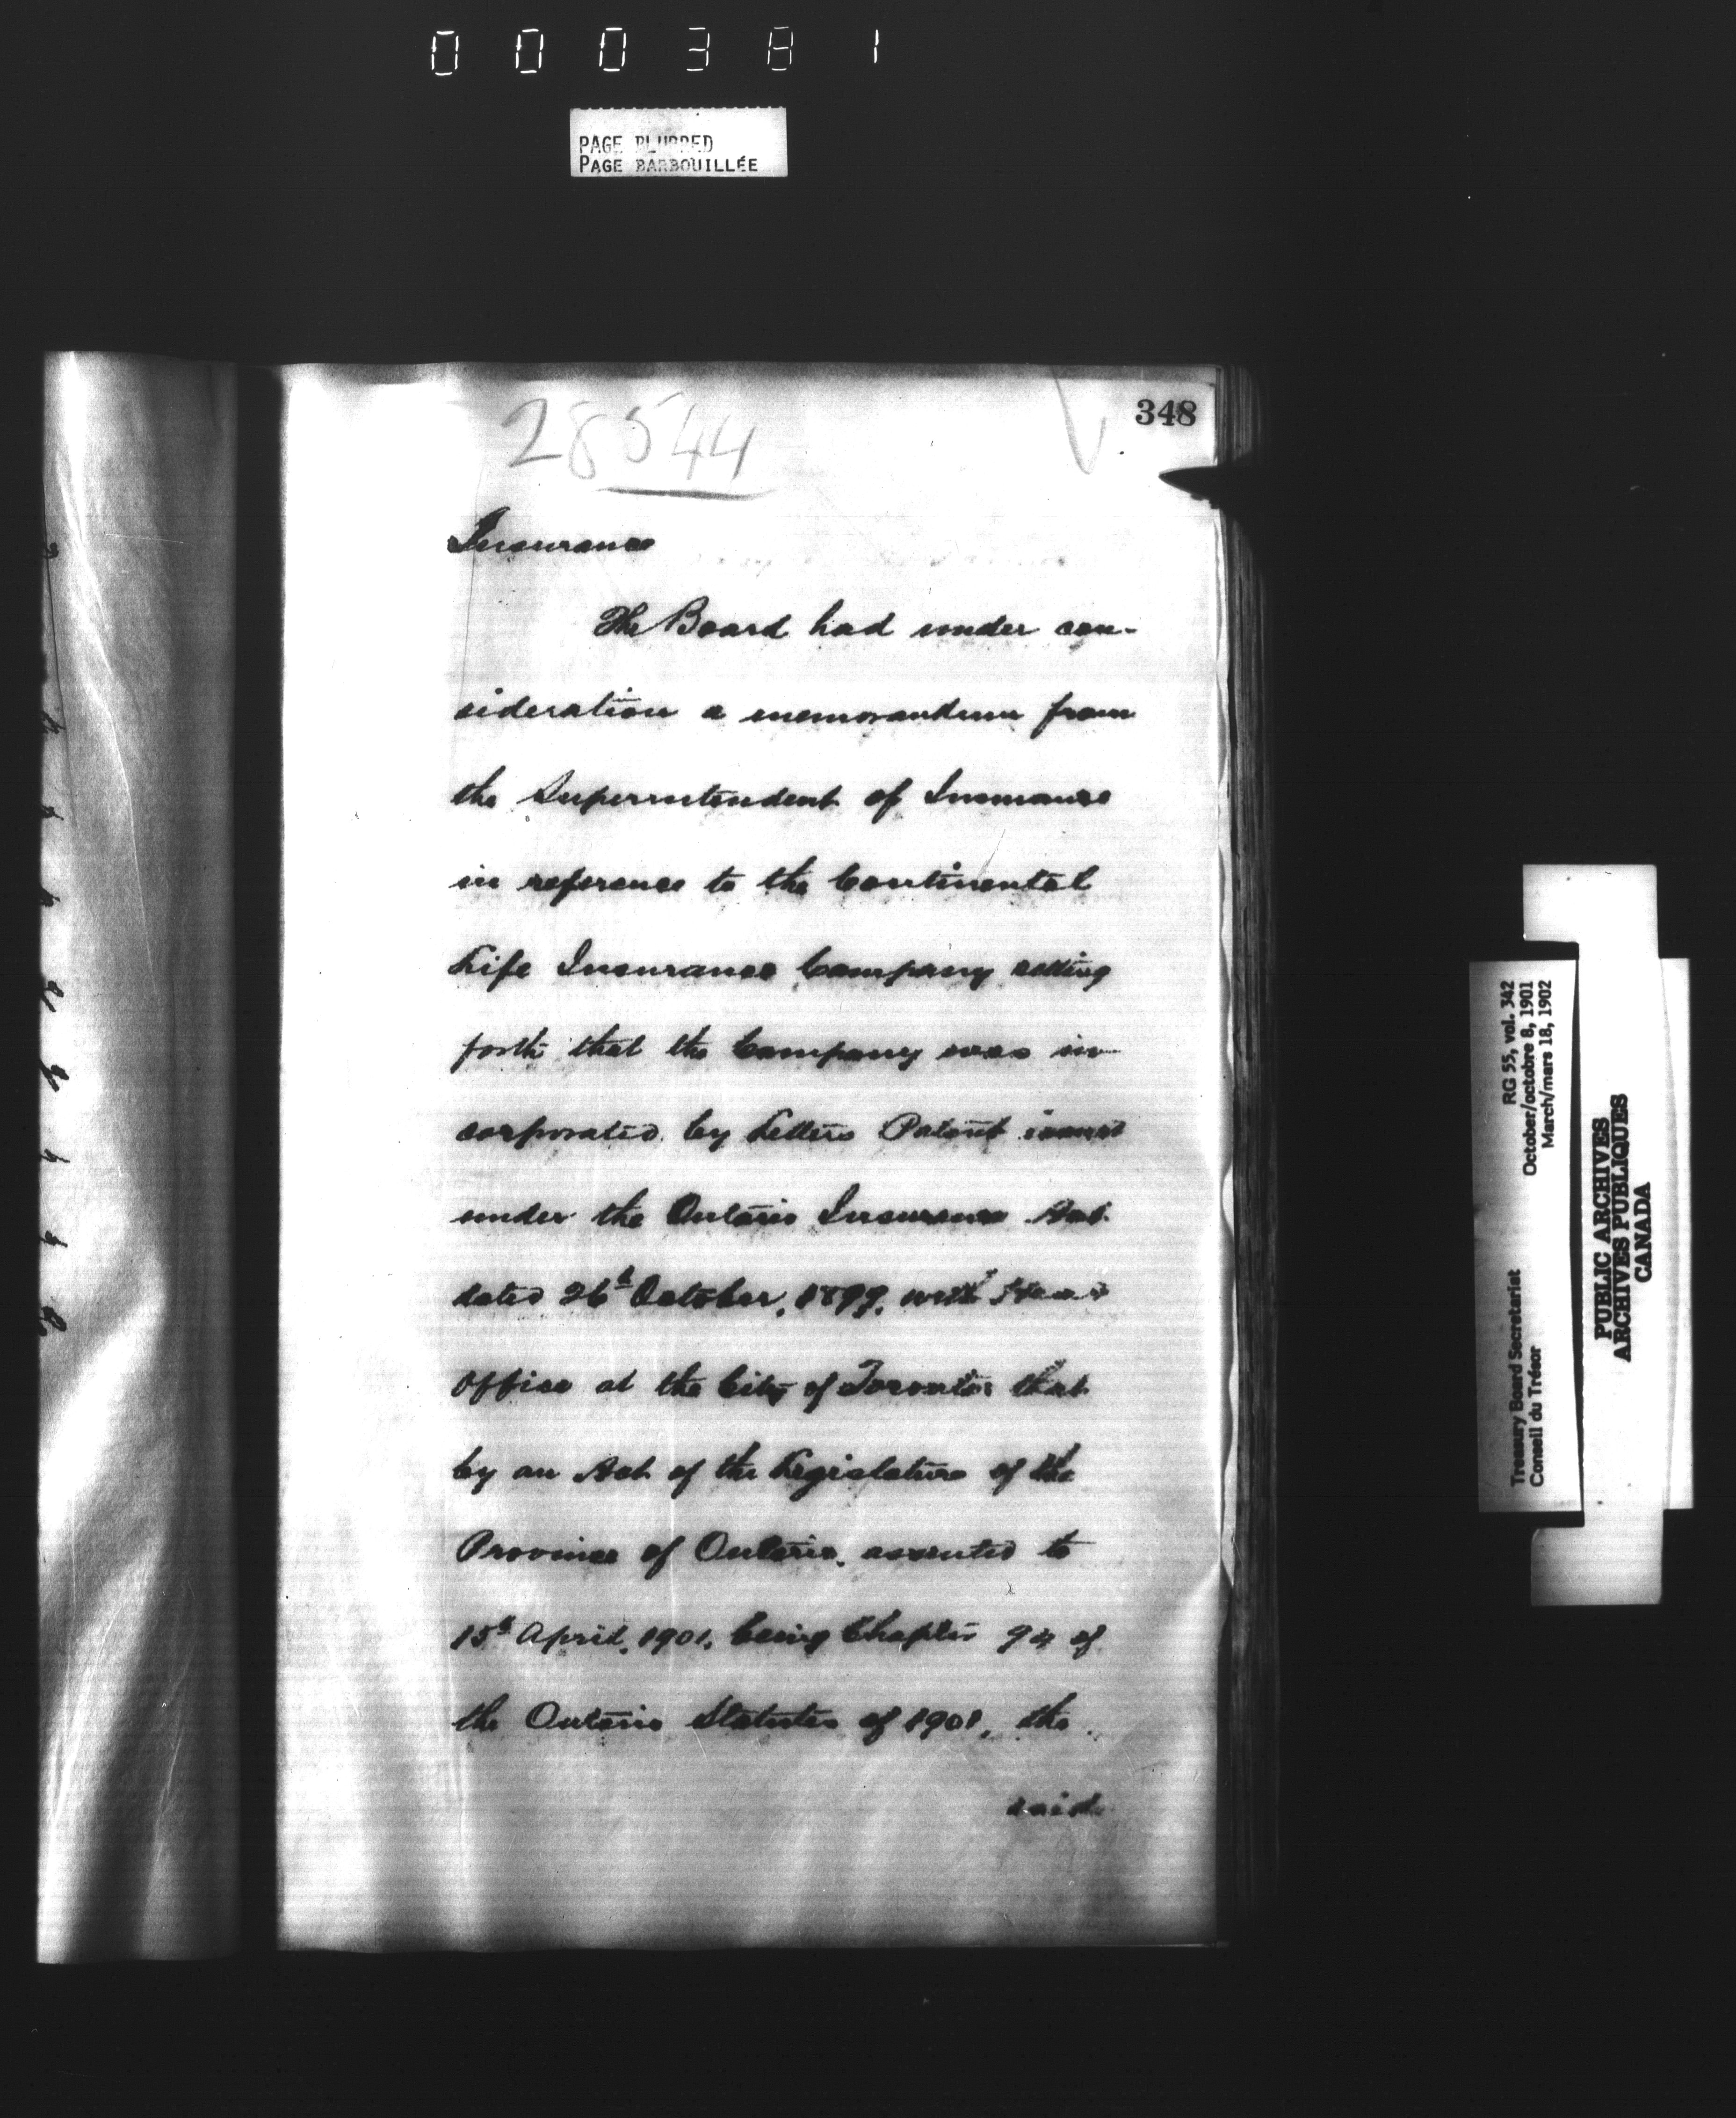 000381
PAGE BLURRED
PAGE BARBOUILLÉE
348
28544
Insurance
The Board had under con-
sideration a memorandum from
the Superintendent of Insurance
in reference to the Continental
Life Insurance Company setting
forth that the Company was in-
corporated by Letters Patent issued
under the Ontario Insurance Act
dated 26th October, 1899, with Head
Office at the City of Toronto: that
by an Act of the Legislature of the
Province of Ontario, assented to
15th April, 1901, being Chapter 94 of
the Ontario Statutes of 1901, the
said
Treasury Board Secretariat RG 55, vol. 342
Conseil du Trésor October/octobre 8, 1901
March/mars 18, 1902
PUBLIC ARCHIVES
ARCHIVES PUBLIQUES
CANADA